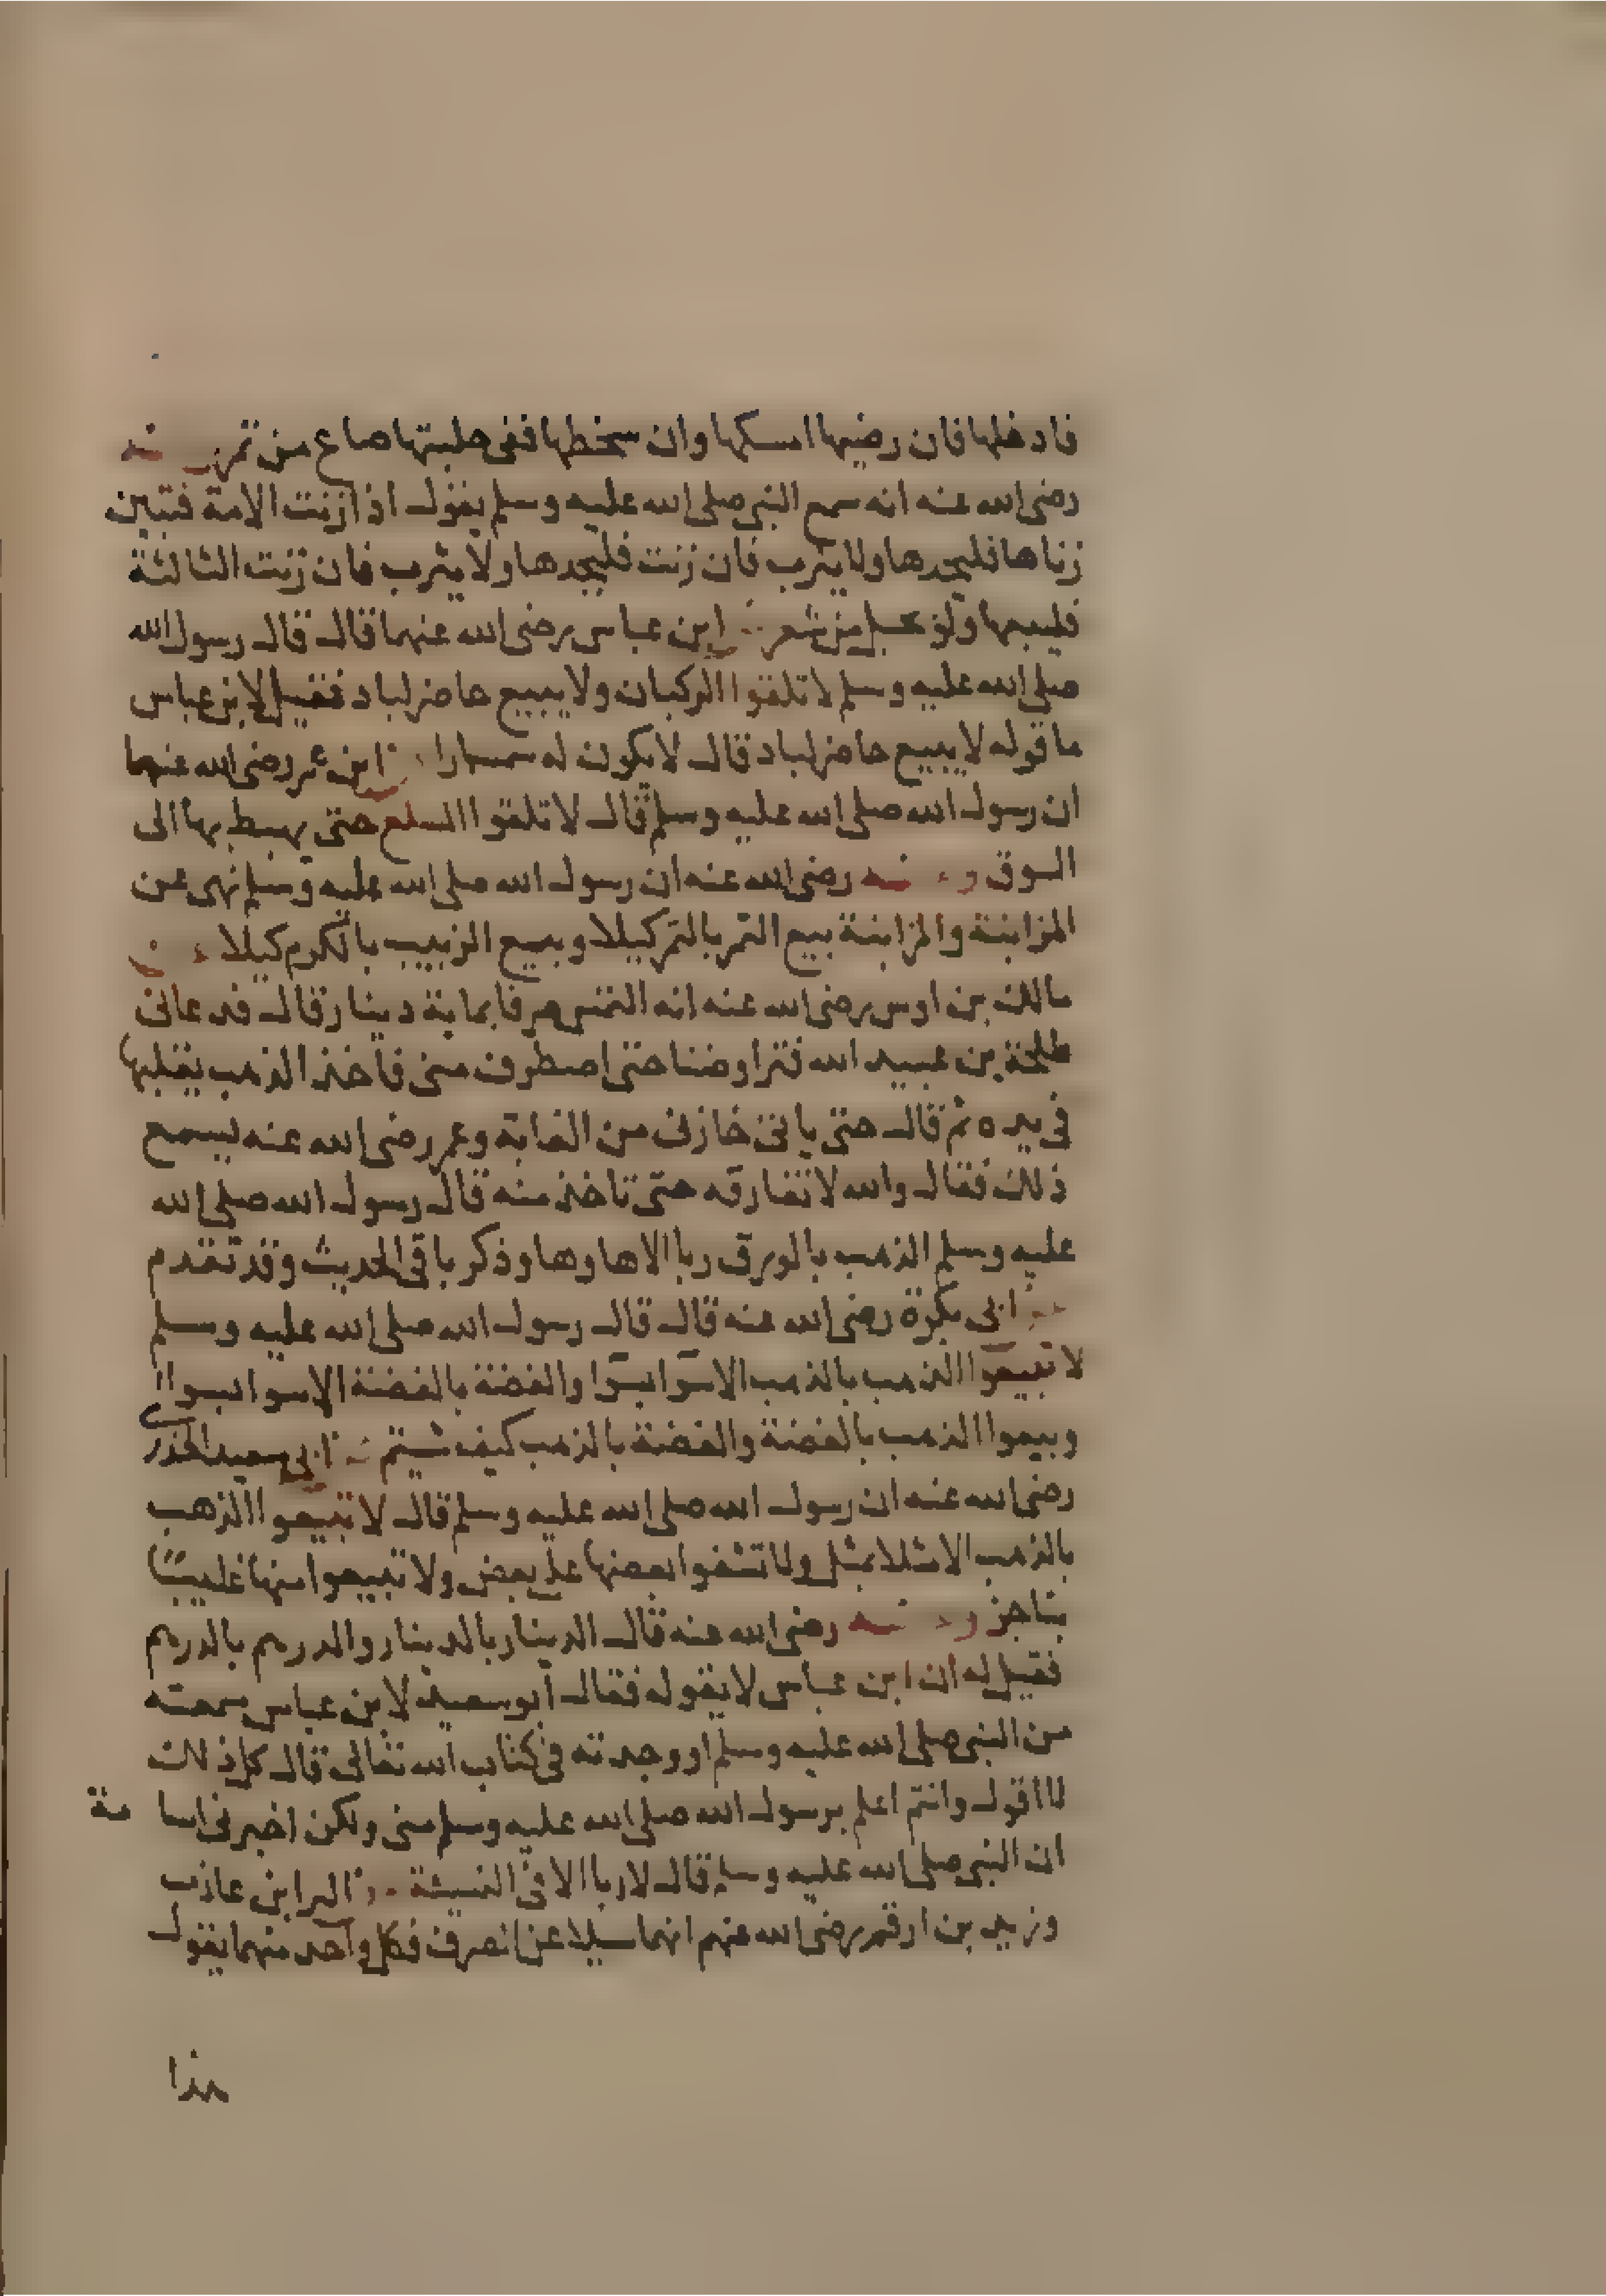 فان رضيها امسكها وان سخطها ففى حلبتها صاع من تمر وعنه
رضى الله عنه انه سمع النبى صلى الله عليه وسلم يقول اذا زنت الامة فتبين
زناها فليجلدها ولا يثرب فان زنت فليجلدها ولا يثرب فان زنت الثالثة
فليبعها ولو بحبل من شعر عن ابن عباس رضى الله عنهما قال قال رسول الله
صلى الله عليه وسلم لا تلقوا الركبان ولا يبيع حاضر لباد فقيل لابن عباس
ما قوله لا يبيع حاضر لباد قال لا يكون له سمسارا عن ابن عمر رضى الله عنهما
ان رسول الله صلى الله عليه وسلم قال لا تلقوا السلع حتى يهبط بها الى
السوق وعنه رضى الله عنه ان رسول الله صلى الله عليه وسلم نهى عن
المزابنة والمزابنة بيع الثمر بالتمر كيلا وبيع الزبيب بالكرم كيلا عن
مالك بن اوس رضى الله عنه انه التمس صرفا بماية دينار قال فدعانى
طلحة بن عبيد الله فتراوضنا حتى اصطرف منى فاخذ الذهب يقلبها
فى يده ثم قال حتى ياتى خازنى من الغابة وعمر رضى الله عنه يسمع
ذلك فقال والله لا تفارقه حتى تاخذ منه قال رسول الله صلى الله
عليه وسلم الذهب بالورق ربا الا ها وها وذكر باقى الحديث وقد تقدم
عن ابى بكرة رضى الله عنه قال قال رسول الله صلى الله عليه وسلم
لا تبيعوا الذهب بالذهب الا سوا بسوا والفضة بالفضة الا سوا بسوا
وبيعوا الذهب بالفضة والفضة بالذهب كيف شيتم عن ابى سعيد الخدرى
رضى الله عنه ان رسول الله صلى الله عليه وسلم قال لا تبيعوا الذهب
بالذهب الا مثلا بمثل ولا تشفوا بعضها على بعض ولا تبيعوا منها غايبا
بناجز وعنه رضى الله عنه قال الدينار بالدينار والدرهم بالدرهم
فقيل له ان ابن عباس لا يقوله فقال ابو سعيد لابن عباس سمعته
من النبى صلى الله عليه وسلم او وجدته فى كتاب الله تعالى قال كل ذلك
لا اقول وانتم اعلم برسول الله صلى الله عليه وسلم منى ولكن اخبرنى اسامة
ان النبى صلى الله عليه وسلم قال لا ربا الا فى النسيئة عن البرا بن عازب
وزيد بن ارقم رضى الله عنهم انهما سيلا عن الصرف فكل واحد منهما يقول
هذا